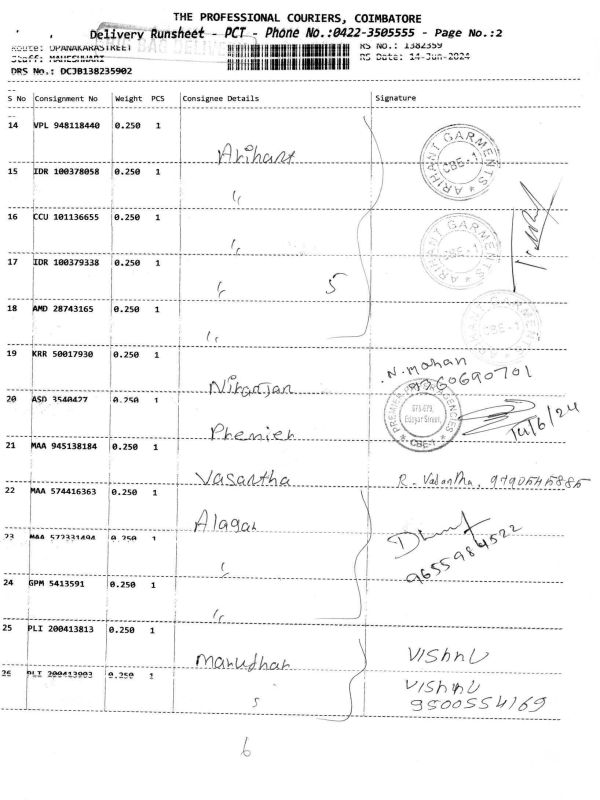 THE PROFESSIONAL COURIERS, COIMBATORE
Delivery Runsheet - PCT - Phone No.:0422-3505555 - Page No.:2
Route: OPANAKARASTREET RS No.: 1382359
Staff: MAHESHWARI RS Date: 14-Jun-2024
DRS No.: DCJB138235902
S No Consignment No Weight PCS Consignee Details Signature
14 VPL 948118440 0.250 1
Arihant
ARIHANT GARMENTS CBE-1
15 IDR 100378058 0.250 1
16 CCU 101136655 0.250 1
ARIHANT GARMENTS CBE-1
17 IDR 100379338 0.250 1
5
18 AMD 28743165 0.250 1
CBE-1
19 KRR 50017930 0.250 1
Niranjan N. mohan
9360690701
20 ASD 3540427 0.250 1
PREMIER AGENCIES 678-679, Edayar Street, CBE-1
14/6/24
21 MAA 945138184 0.250 1
Vasantha R. Vasantha, 9790545885
22 MAA 574416363 0.250 1
Alagar
23 MAA 572331494 0.250 1
9655984522
24 GPM 5413591 0.250 1
25 PLI 200413813 0.250 1
Manudhar VISHNU
26 PLI 200413903 0.250 1
VISHNU
9500554169
6